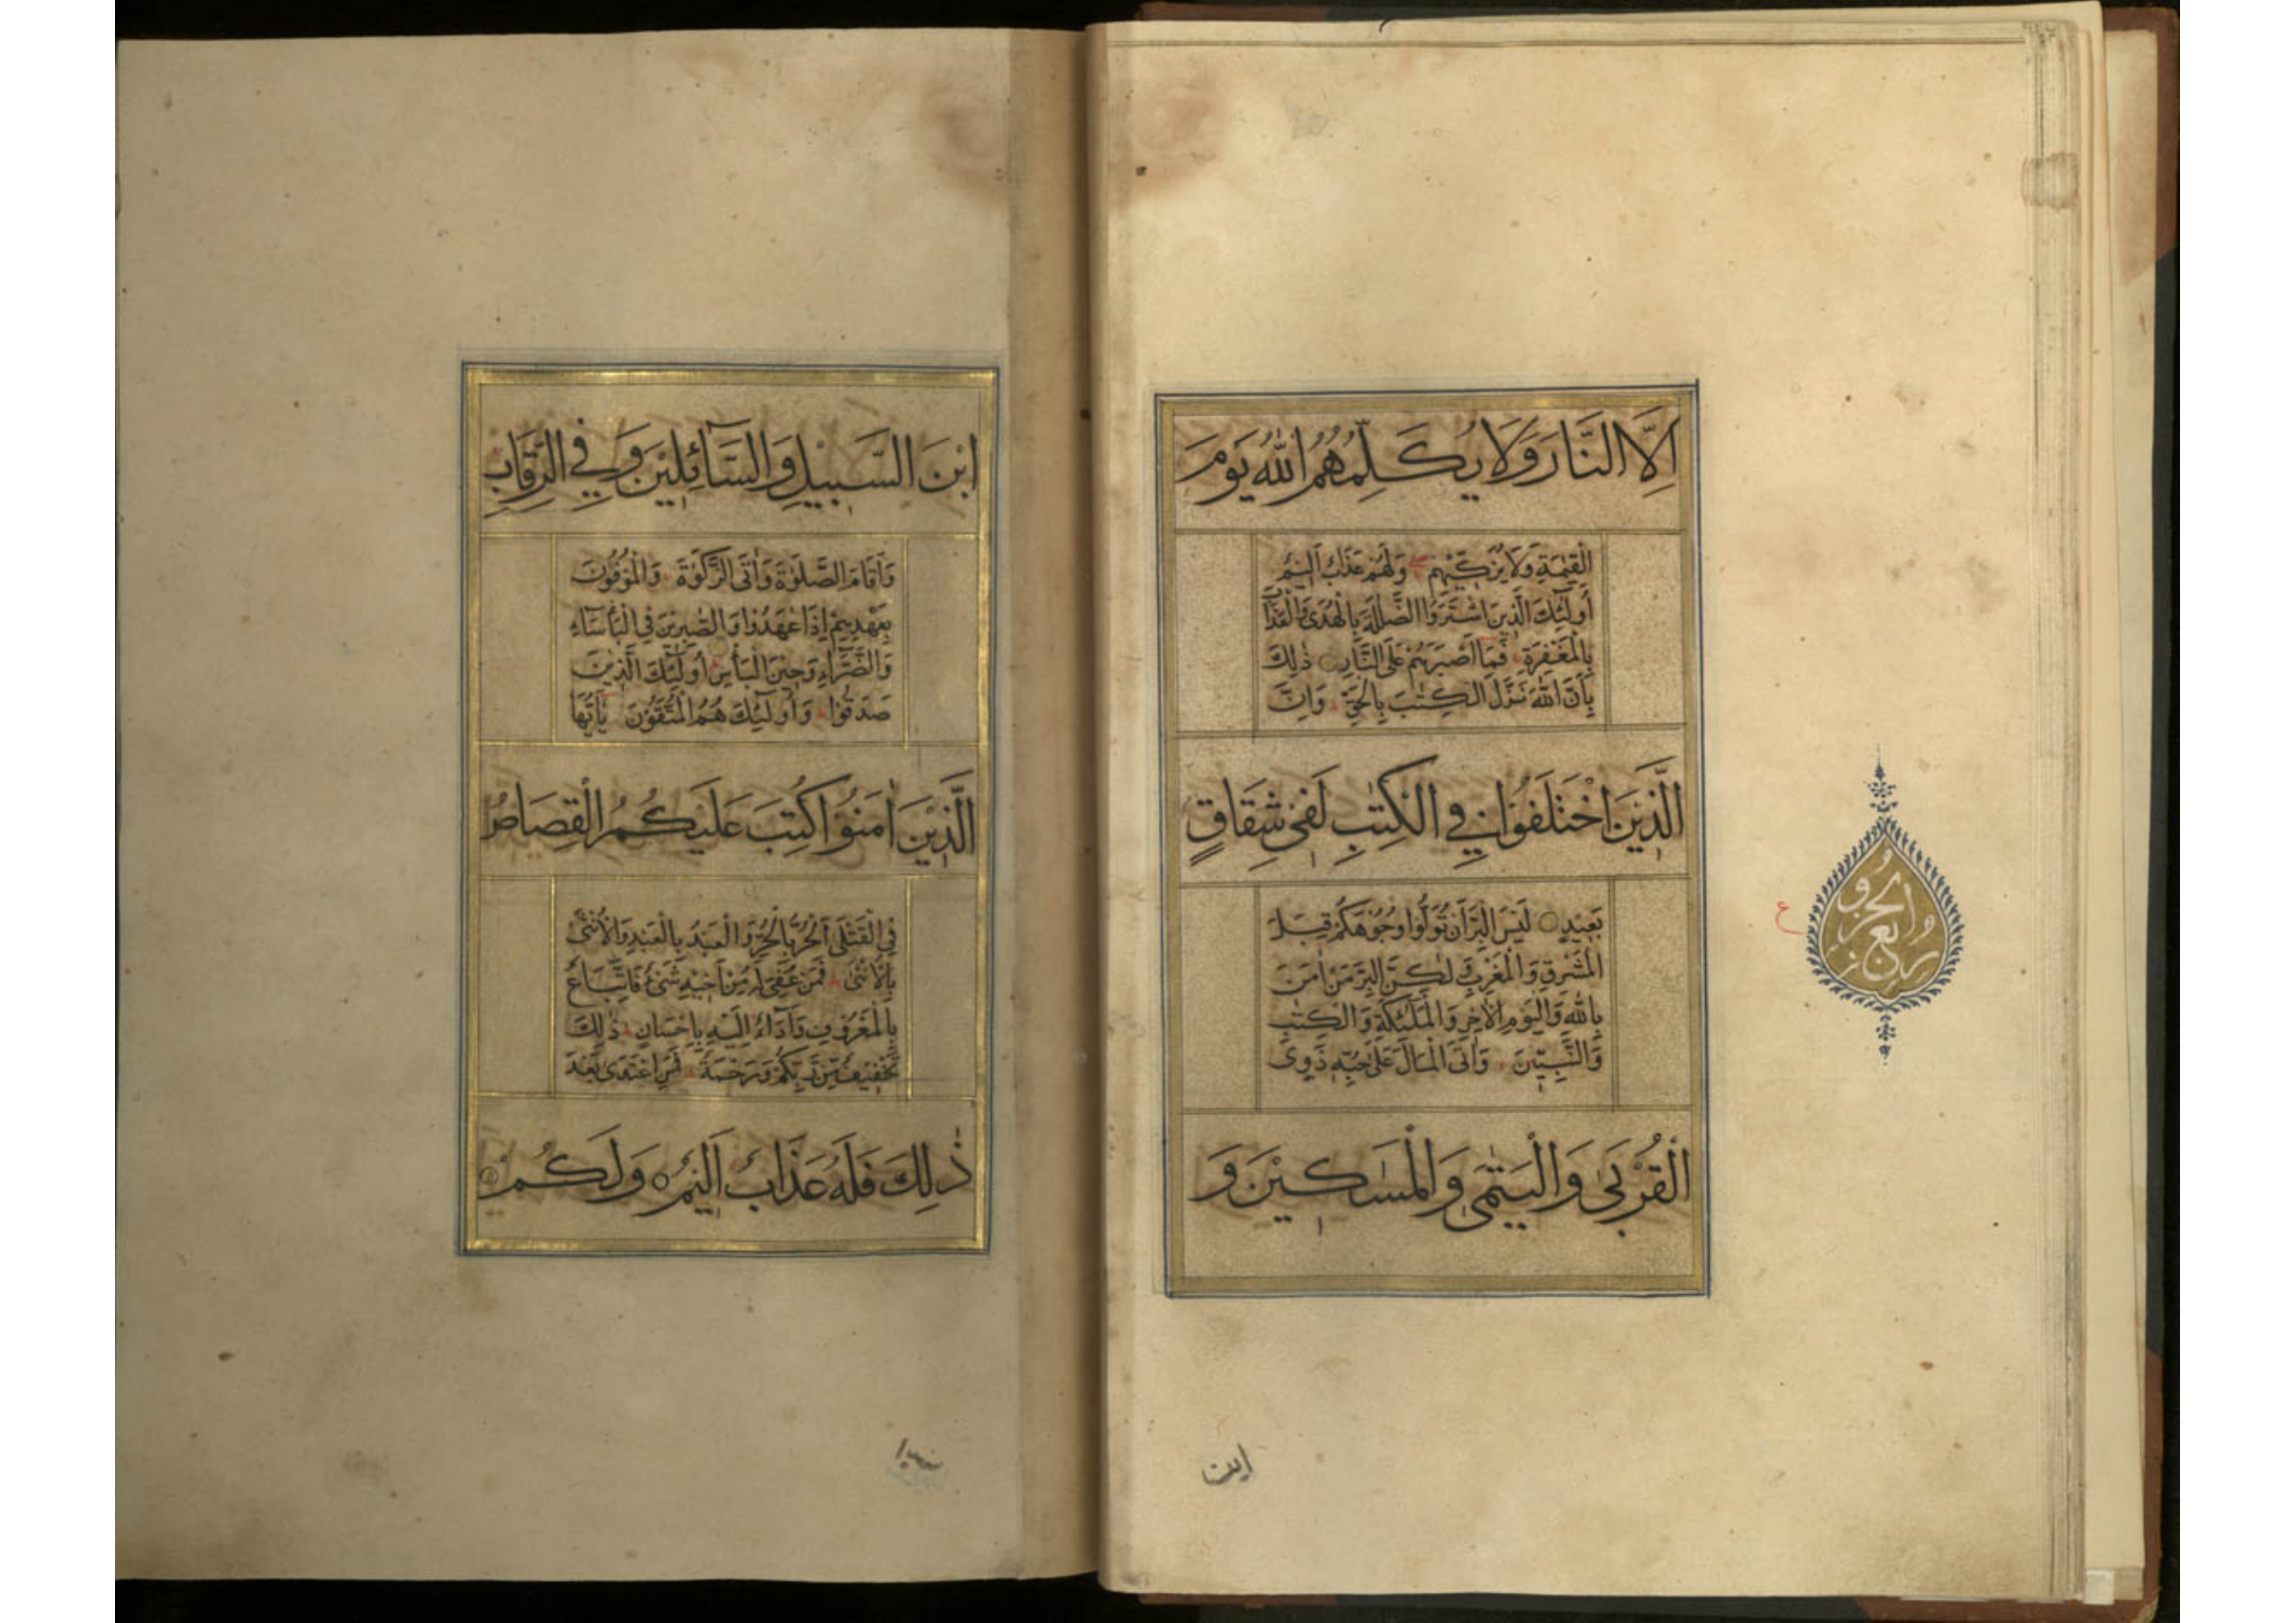 اِلَّا النَّارَ وَلَا يُكَلِّمُهُمُ اللّٰهُ يَوْمَ
الْقِيٰمَةِ وَلَا يُزَكِّيْهِمْ وَلَهُمْ عَذَابٌ اَلِيْمٌ
أُولٰٓئِكَ الَّذِيْنَ اشْتَرَوُا الضَّلٰلَةَ بِالْهُدٰى وَالْعَذَابَ
بِالْمَغْفِرَةِ فَمَا اَصْبَرَهُمْ عَلَى النَّارِ ذٰلِكَ
بِاَنَّ اللّٰهَ نَزَّلَ الْكِتٰبَ بِالْحَقِّ وَاِنَّ
الَّذِيْنَ اخْتَلَفُوْا فِي الْكِتٰبِ لَفِيْ شِقَاقٍ
بَعِيْدٍ لَيْسَ الْبِرَّ اَنْ تُوَلُّوْا وُجُوْهَكُمْ قِبَلَ
الْمَشْرِقِ وَالْمَغْرِبِ وَلٰكِنَّ الْبِرَّ مَنْ اٰمَنَ
بِاللّٰهِ وَالْيَوْمِ الْاٰخِرِ وَالْمَلٰٓئِكَةِ وَالْكِتٰبِ
وَالنَّبِيّٖنَ وَاٰتَى الْمَالَ عَلٰى حُبِّهٖ ذَوِي
الْقُرْبٰى وَالْيَتٰمٰى وَالْمَسٰكِيْنَ وَ
ربع
الحزب
ع
ابن
ابْنَ السَّبِيْلِ وَالسَّآئِلِيْنَ وَفِي الرِّقَابِ
وَاَقَامَ الصَّلٰوةَ وَاٰتَى الزَّكٰوةَ وَالْمُوْفُوْنَ
بِعَهْدِهِمْ اِذَا عٰهَدُوْا وَالصّٰبِرِيْنَ فِي الْبَأْسَآءِ
وَالضَّرَّآءِ وَحِيْنَ الْبَأْسِ أُولٰٓئِكَ الَّذِيْنَ
صَدَقُوْا وَأُولٰٓئِكَ هُمُ الْمُتَّقُوْنَ يٰٓاَيُّهَا
الَّذِيْنَ اٰمَنُوْا كُتِبَ عَلَيْكُمُ الْقِصَاصُ
فِي الْقَتْلٰى اَلْحُرُّ بِالْحُرِّ وَالْعَبْدُ بِالْعَبْدِ وَالْاُنْثٰى
بِالْاُنْثٰى فَمَنْ عُفِيَ لَهٗ مِنْ اَخِيْهِ شَيْءٌ فَاتِّبَاعٌ
بِالْمَعْرُوْفِ وَاَدَآءٌ اِلَيْهِ بِاِحْسَانٍ ذٰلِكَ
تَخْفِيْفٌ مِّنْ رَّبِّكُمْ وَرَحْمَةٌ فَمَنِ اعْتَدٰى بَعْدَ
ذٰلِكَ فَلَهٗ عَذَابٌ اَلِيْمٌ وَلَكُمْ